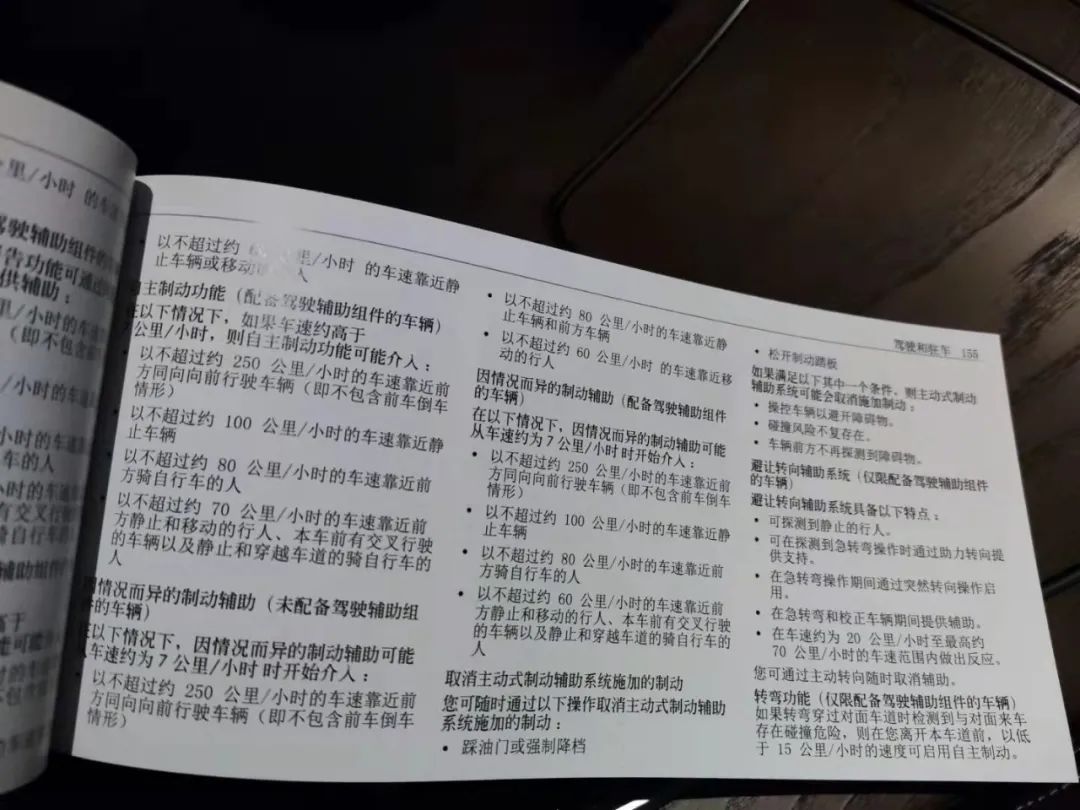 里/小时 的车速
驾驶辅助组件的车
告功能可通过
供辅助：
里/小时的车速
（即不包含前
小时的车速靠近
车的人
小时的车速靠近
有交叉行驶
自行车的
辅助组件
高于
以不超过约 里/小时 的车速靠近静
止车辆或移动 人
主制动功能（配备驾驶辅助组件的车辆）
在以下情况下，如果车速约高于
7 公里/小时，则自主制动功能可能介入：
以不超过约 250 公里/小时的车速靠近前
方同向向前行驶车辆（即不包含前车倒车
情形）
以不超过约 100 公里/小时的车速靠近静
止车辆
以不超过约 80 公里/小时的车速靠近前
方骑自行车的人
以不超过约 70 公里/小时的车速靠近前
方静止和移动的行人、本车前有交叉行驶
的车辆以及静止和穿越车道的骑自行车的
人
因情况而异的制动辅助（未配备驾驶辅助组
件的车辆）
在以下情况下，因情况而异的制动辅助可能
从车速约为 7 公里/小时 时开始介入：
以不超过约 250 公里/小时的车速靠近前
方同向向前行驶车辆（即不包含前车倒车
情形）
• 以不超过约 80 公里/小时的车速靠近静
止车辆和前方车辆
• 以不超过约 60 公里/小时 的车速靠近移
动的行人
因情况而异的制动辅助（配备驾驶辅助组件
的车辆）
在以下情况下，因情况而异的制动辅助可能
从车速约为 7 公里/小时 时开始介入：
• 以不超过约 250 公里/小时的车速靠近前
方同向向前行驶车辆（即不包含前车倒车
情形）
• 以不超过约 100 公里/小时的车速靠近静
止车辆
• 以不超过约 80 公里/小时的车速靠近前
方骑自行车的人
• 以不超过约 60 公里/小时的车速靠近前
方静止和移动的行人、本车前有交叉行驶
的车辆以及静止和穿越车道的骑自行车的
人
取消主动式制动辅助系统施加的制动
您可随时通过以下操作取消主动式制动辅助
系统施加的制动：
• 踩油门或强制降档
驾驶和驻车 155
• 松开制动踏板
如果满足以下其中一个条件，则主动式制动
辅助系统可能会取消施加制动：
• 操控车辆以避开障碍物。
• 碰撞风险不复存在。
• 车辆前方不再探测到障碍物。
避让转向辅助系统（仅限配备驾驶辅助组件
的车辆）
避让转向辅助系统具备以下特点：
• 可探测到静止的行人。
• 可在探测到急转弯操作时通过助力转向提
供支持。
• 在急转弯操作期间通过突然转向操作启
用。
• 在急转弯和校正车辆期间提供辅助。
• 在车速约为 20 公里/小时至最高约
70 公里/小时的车速范围内做出反应。
您可通过主动转向随时取消辅助。
转弯功能（仅限配备驾驶辅助组件的车辆）
如果转弯穿过对面车道时检测到与对面来车
存在碰撞危险，则在您离开本车道前，以低
于 15 公里/小时的速度可启用自主制动。